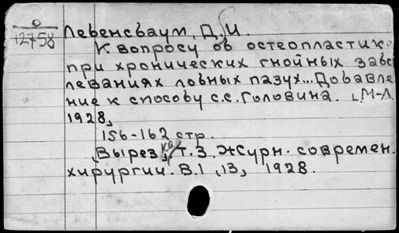 С
12758
Левенсваум, Д. И.
К вопросу об остеопластике
при хронических гнойных забо
леваниях лобных пазух... Добавле
ние к способу С.С. Головина. М-Л.
1928,
156-162 стр.
Вырезка, Т. 3. Журн. современ.
хирургии. В.1, 13, 1928.